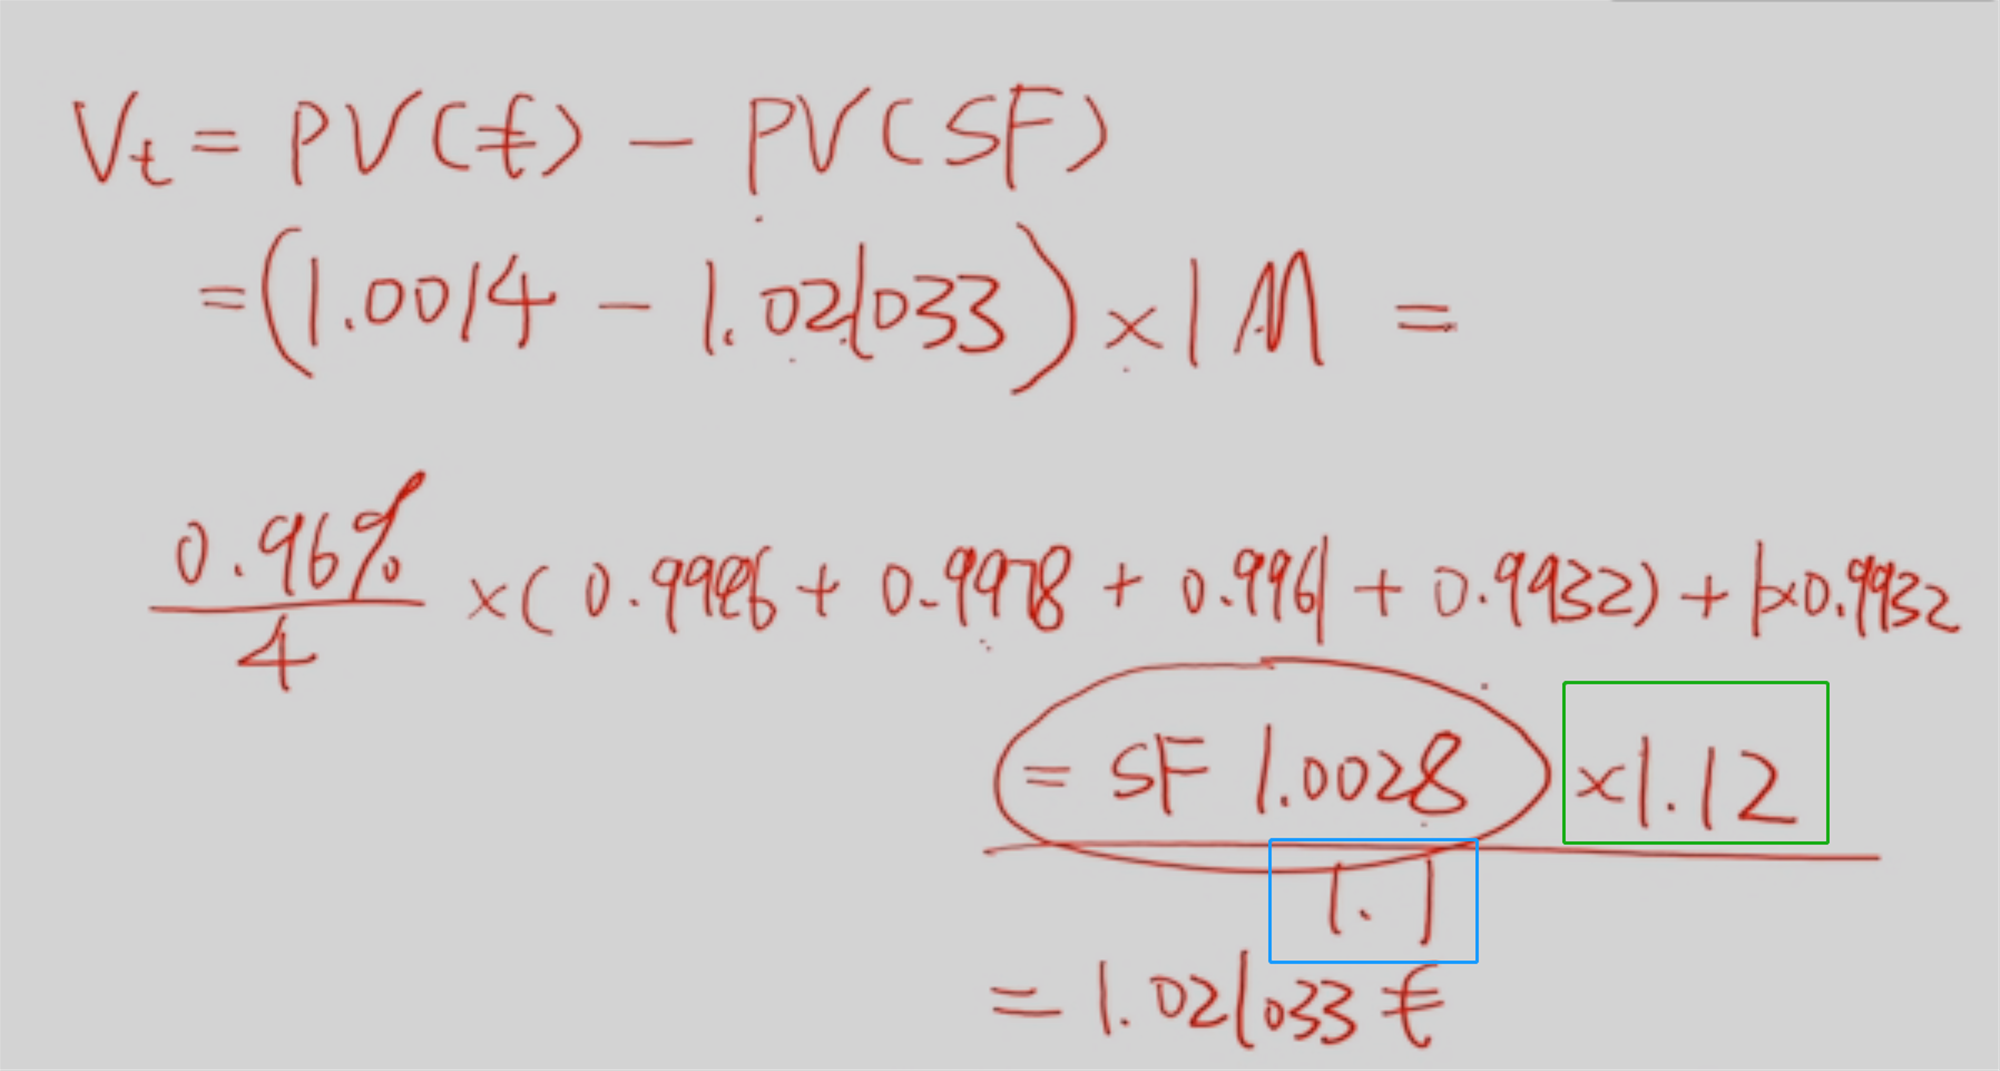 Vt = PV(€) - PV(SF)
= (1.0014 - 1.021033) × 1M =
0.96%/4 × (0.9986 + 0.9978 + 0.9961 + 0.9932) + 1×0.9932
= SF 1.0028 ×1.12
1.1
= 1.021033 €